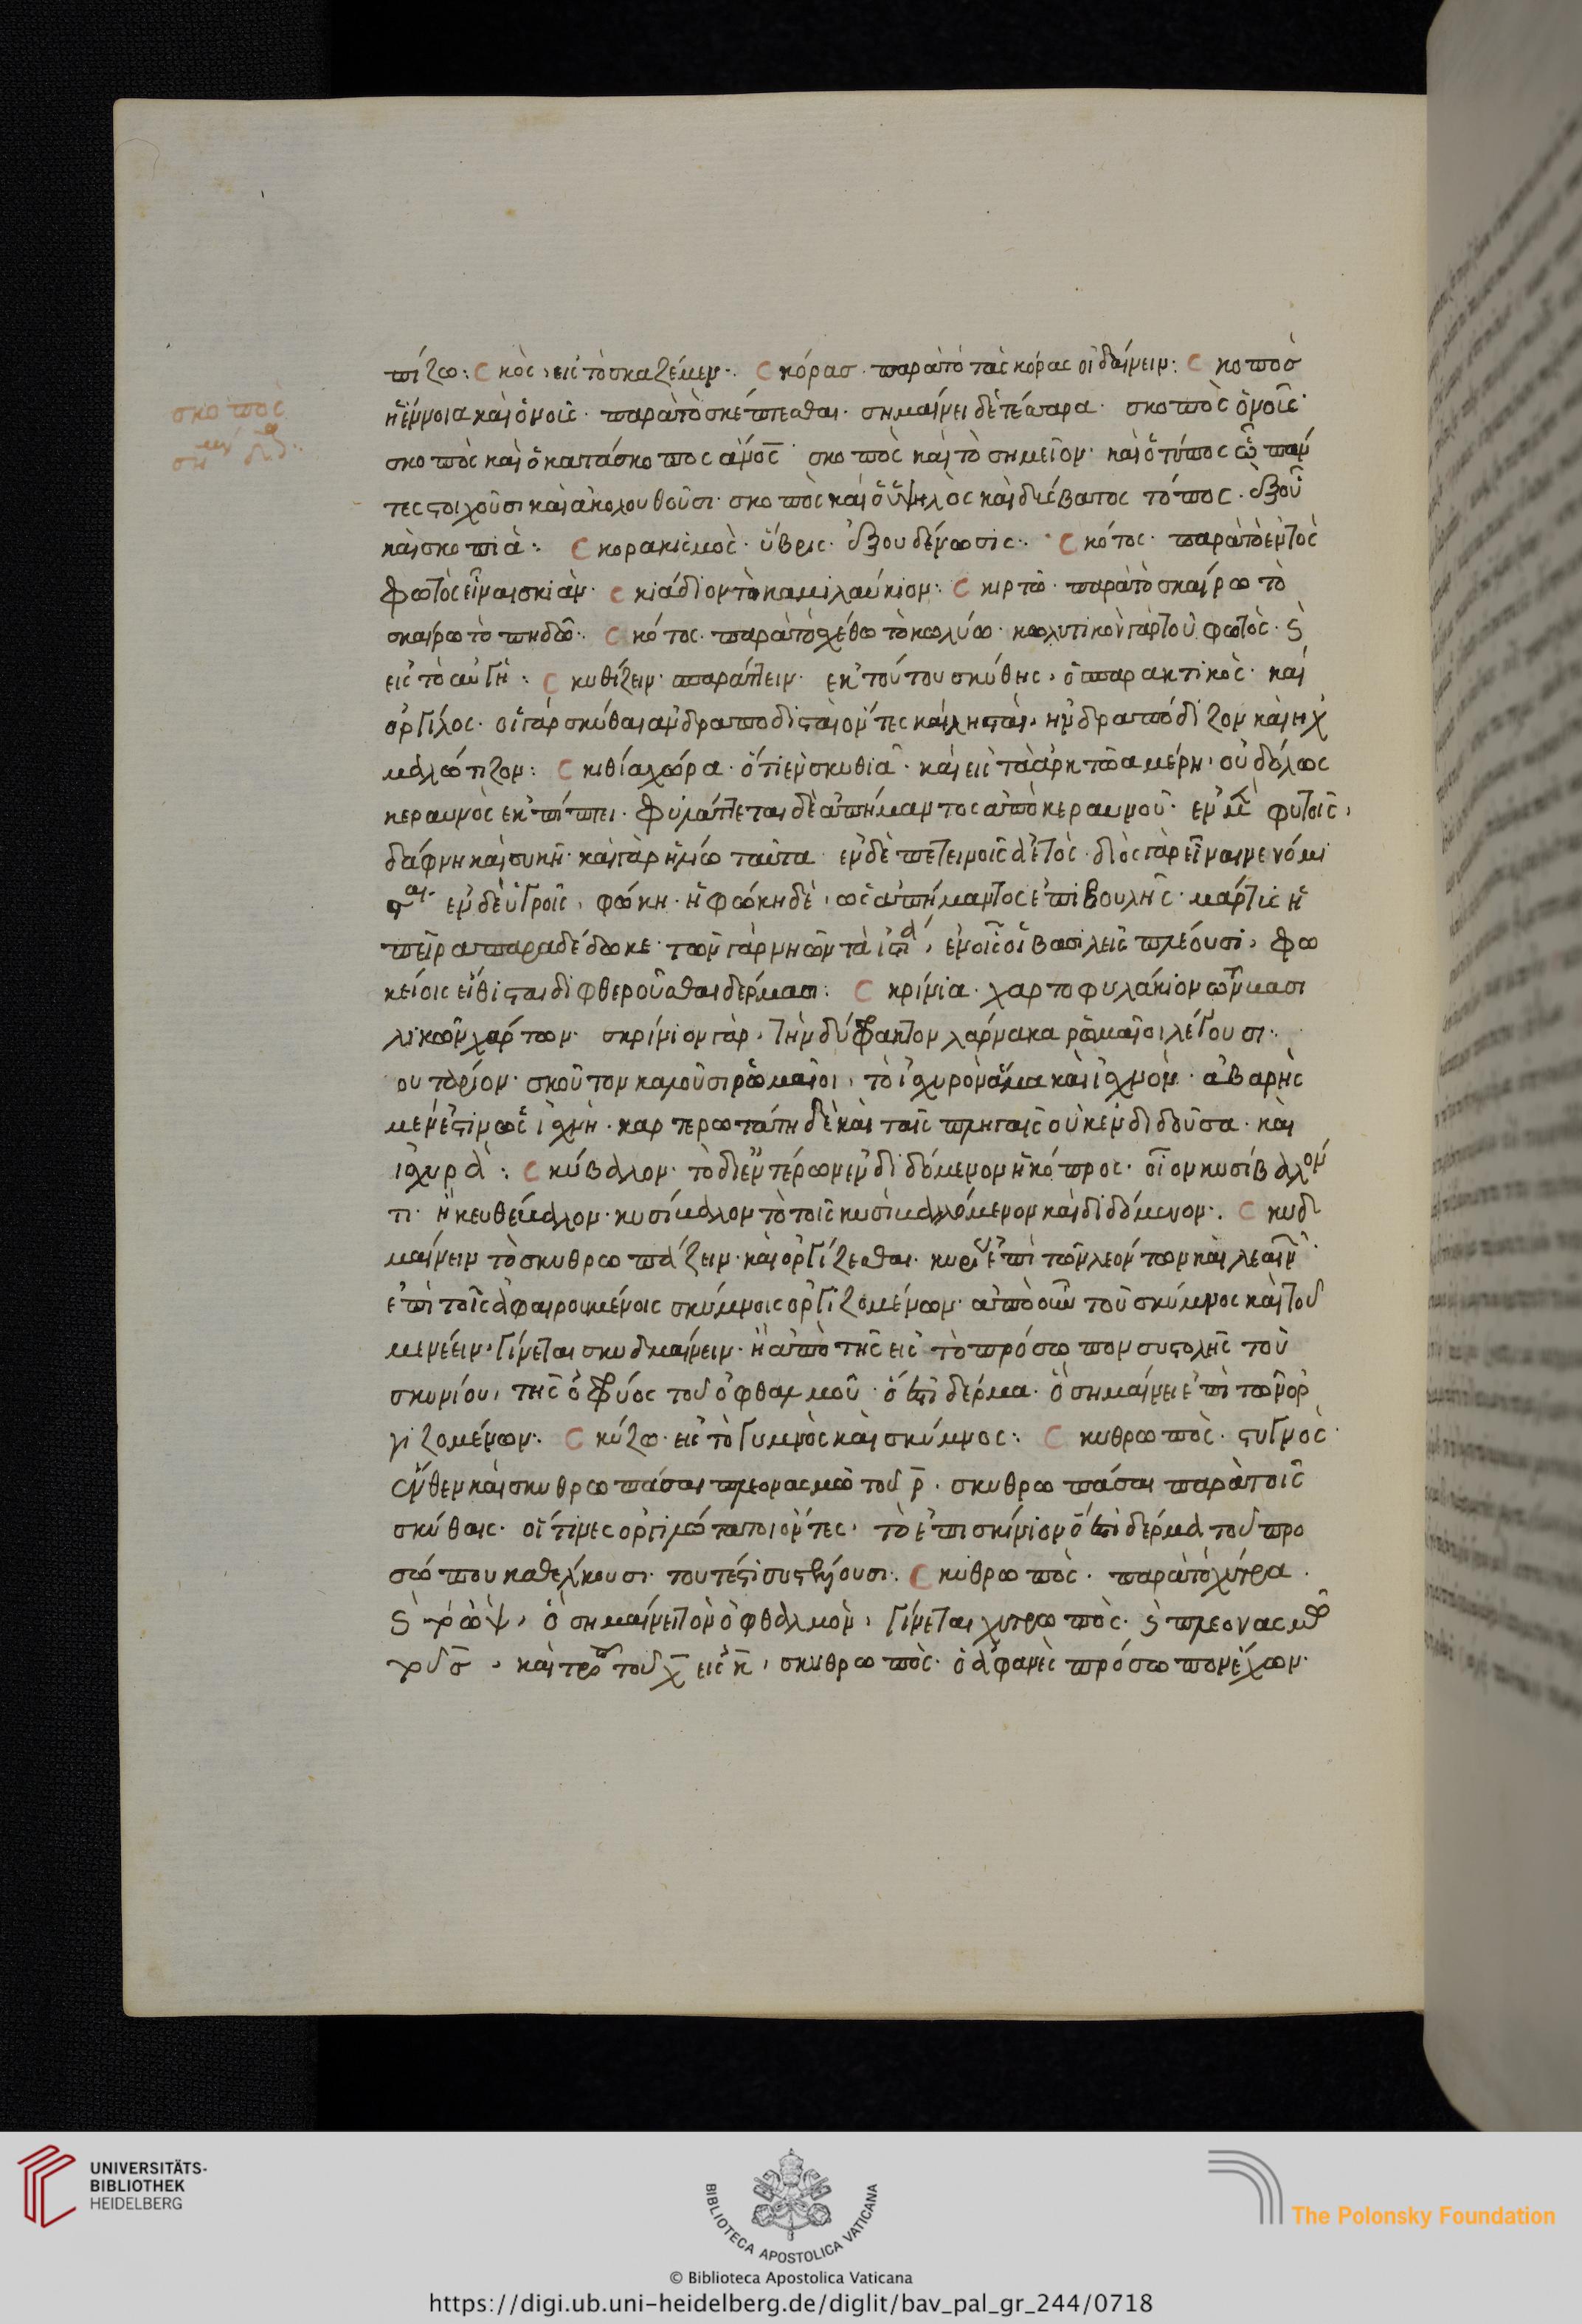 πίζω: Cκὸς· εἰς τὸ σκαζέμεν·. Cκόρασ· παρὰ τὸ τὰς κόρας οἰδαίνειν: Cκοποσ
ἡ ἔννοια καὶ ὁ νοῦς· παρὰ τὸ σκέπτεσθαι· σημαίνει δὲ τέσσαρα· σκοπὸς ὁ νοῦς·
σκοπὸς καὶ ὁ κατάσκοπος σκοπὸς καὶ τὸ σημεῖον· καὶ ὁ τύπος ᾧ πάν
τες στοιχοῦσι καὶ ἀκολουθοῦσι· σκοπὸς καὶ ὁ ὑψηλὸς καὶ διέβατος τόπος· ἐξ οὗ
καὶ σκοπιά:. Cκορακισμὸς· ὕβρις· ἐξουδένωσις·. Cκότος· παρὰ τὸ ἐντὸς
φωτὸς εἶναι σκιάν· Cκιάδιον τὸ καμιλαύκιον: Cκιρτῶ· παρὰ τὸ σκαίρω τὸ
σκαίρω τὸ πηδῶ·. Cκότος· παρὰ τὸ σχέθω τὸ κωλύω· κωλυτικὸν γὰρ τοῦ φωτὸς· ϛ
εἰς τὸ αὐγὴ: Cκυθίζειν· σπαράττειν· ἐκ τούτου σκύθης, ὁ σπαρακτικὸς· καὶ
ὀργίλος· οἱ γὰρ σκύθαι ἀνδραποδισταὶ ὄντες καὶ λησταὶ, ἠνδραπόδιζον καὶ ἠχ
μαλώτιζον: Cκιθία χώρα· ὅτι ἐν σκυθίᾳ· καὶ εἰς τὰ ἀρκτῶα μέρη, οὐδόλως
κεραυνὸς ἐκπίπτει· φυλάττεται δὲ ἀπήμαντος ἀπὸ κεραυνοῦ· ἐν μὲν φυτοῖς,
δάφνη καὶ συκῆ· καὶ γὰρ ἡλίω ταῦτα ἐν δὲ πετεινοῖς ἀετὸς· διὸς γὰρ εἶναι νενόμι
σται· ἐν δὲ ὑγροῖς, φώκη· ἡ φώκη δὲ, ὡς ἀπήμαντος ἐπιβουλῆς· μάρτυς ἡ
πεῖρα παραδέδωκε· τῶν γὰρ νηῶν τὰ ἱστία, ἐν οἷς οἱ βασιλεῖς πλέουσι, φω
κείοις εἴθισται διφθεροῦσθαι δέρμασι: Cκρίνια· χαρτοφυλάκιον τῶν βασι
λικῶν χάρτων· σκρίνιον γὰρ, τὴν δύφακτον λάρνακα ῥωμαῖοι λέγουσι·.
ουτάριον· σκοῦτον καλοῦσι ῥωμαῖοι, τὸ ἰσχυρὸν ἅμα καὶ ἰσχνὸν· ἀβαρὴς
μέν ἐστιν ὡς ἰσχνὴ· καρτερωτάτη δὲ καὶ ταῖς πληγαῖς οὐκ ἐνδιδοῦσα· καὶ
ἰσχυρά: Cκύβαλον· τὸ δι' ἐντέρων ἐνδιδόμενον ἡ κόπρος· οἷον κυσίβαλόν
τι· ἢ κευθέμβαλον· κυσίβαλον τὸ τοῖς κυσὶ βαλλόμενον καὶ διδόμενον·. Cκυδ
μαίνειν τὸ σκυθρωπάζειν· καὶ ὀργίζεσθαι· κυρίως ἐπὶ τῶν λεόντων καὶ λεαινῶν·
ἐπὶ τοῖς ἀφαιρουμένοις σκύμνοις ὀργιζομένων· ἀπὸ οὖν τοῦ σκύμνος καὶ τοῦ
μενέειν, γίνεται σκυδμαίνειν· ἢ ἀπὸ τῆς εἰς τὸ πρόσωπον συστολῆς τοῦ
σκυνίου, τῆς ὀφρύος τοῦ ὀφθαλμοῦ· ὅ ἐστι δέρμα· ὃ σημαίνει ἐπὶ τῶν ὀρ
γιζομένων·. Cκύζω· εἰς τὸ γυμνὸς καὶ σκύμνος: Cκυθρωπὸς· στυγνὸς·
ἔνθεν καὶ σκυθρωπάσαι πλεονασμῶ τοῦ ρ· σκυθρωπάσαι παρὰ τοῖς
σκύθαις· οἵτινες ὀργιλώτατοι ὄντες, τὸ ἐπισκύνιον ὅ ἐστι δέρμα τοῦ προ
σώπου καθέλκουσι· τουτέστι στυγνάζουσι·. Cκυθρωπὸς· παρὰ τὸ χύτρα·
ϛ τὸ ὢψ, ὃ σημαίνει τὸν ὀφθαλμὸν, γίνεται χυτρωπὸς· ϛ πλεονασμῶ
τοῦ σ, καὶ τροπῆ τοῦ χ εἰς κ, σκυθρωπὸς· ὁ ἀφανὲς πρόσωπον ἔχων·
σκοπὸς
UNIVERSITÄTS-
BIBLIOTHEK
HEIDELBERG
BIBLIOTECA APOSTOLICA VATICANA
The Polonsky Foundation
© Biblioteca Apostolica Vaticana
https://digi.ub.uni-heidelberg.de/diglit/bav_pal_gr_244/0718